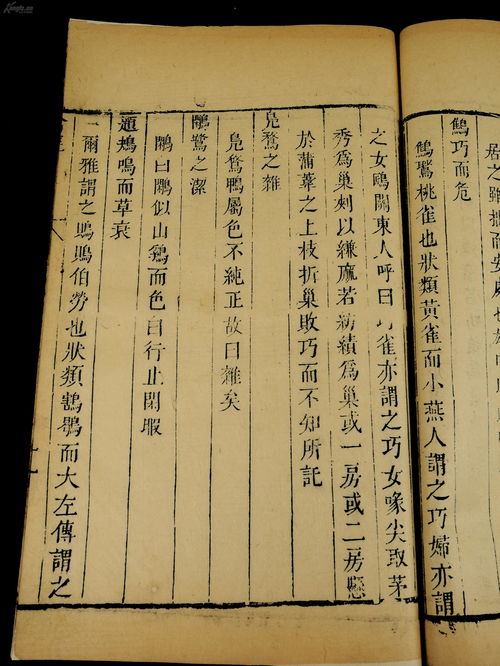 居之雖拙而安處
鷦巧而危
鷦鷯桃雀也狀類黃雀而小燕人謂之巧婦亦謂
之女鴟關東人呼曰巧雀亦謂之巧女喙尖取茅
秀爲巢刺以縑麻若紡績爲巢或一房或二房懸
於蒲葦之上枝折巢敗巧而不知所託
鳧鶩之雜
鳧鶩鴨屬色不純正故曰雜矣
鷳鷺之潔
鷳曰鷳似山鷄而色白行止閑暇
鴂鳴而草衰
爾雅謂之鵙鵙伯勞也狀類鶷鶡而大左傳謂之